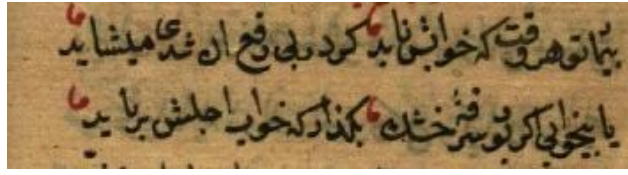 بیمار تو هر وقت که خوابش ناید کردن پی دفع ان شدی میشاید
یا بیخوابی اکر بود سرفهٔ خشک بکذار که خواب اجلش برباید